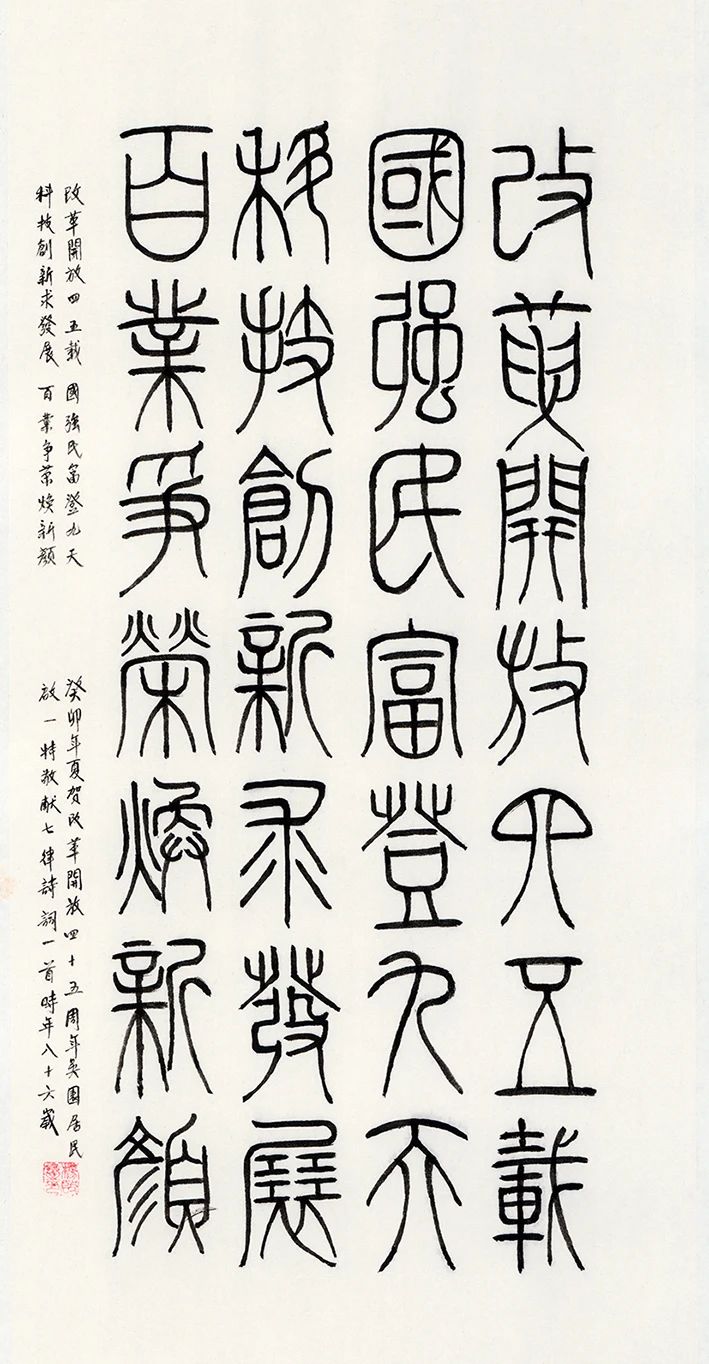 改革開放四五載
國強民富登九天
科技創新求發展
百業爭榮煥新顏
改革開放四五載 國強民富登九天
科技創新求發展 百業争荣焕新顏
癸卯年夏贺改革開放四十五周年吳園居民
啟一特敬献七律詩詞一首時年八十六歲